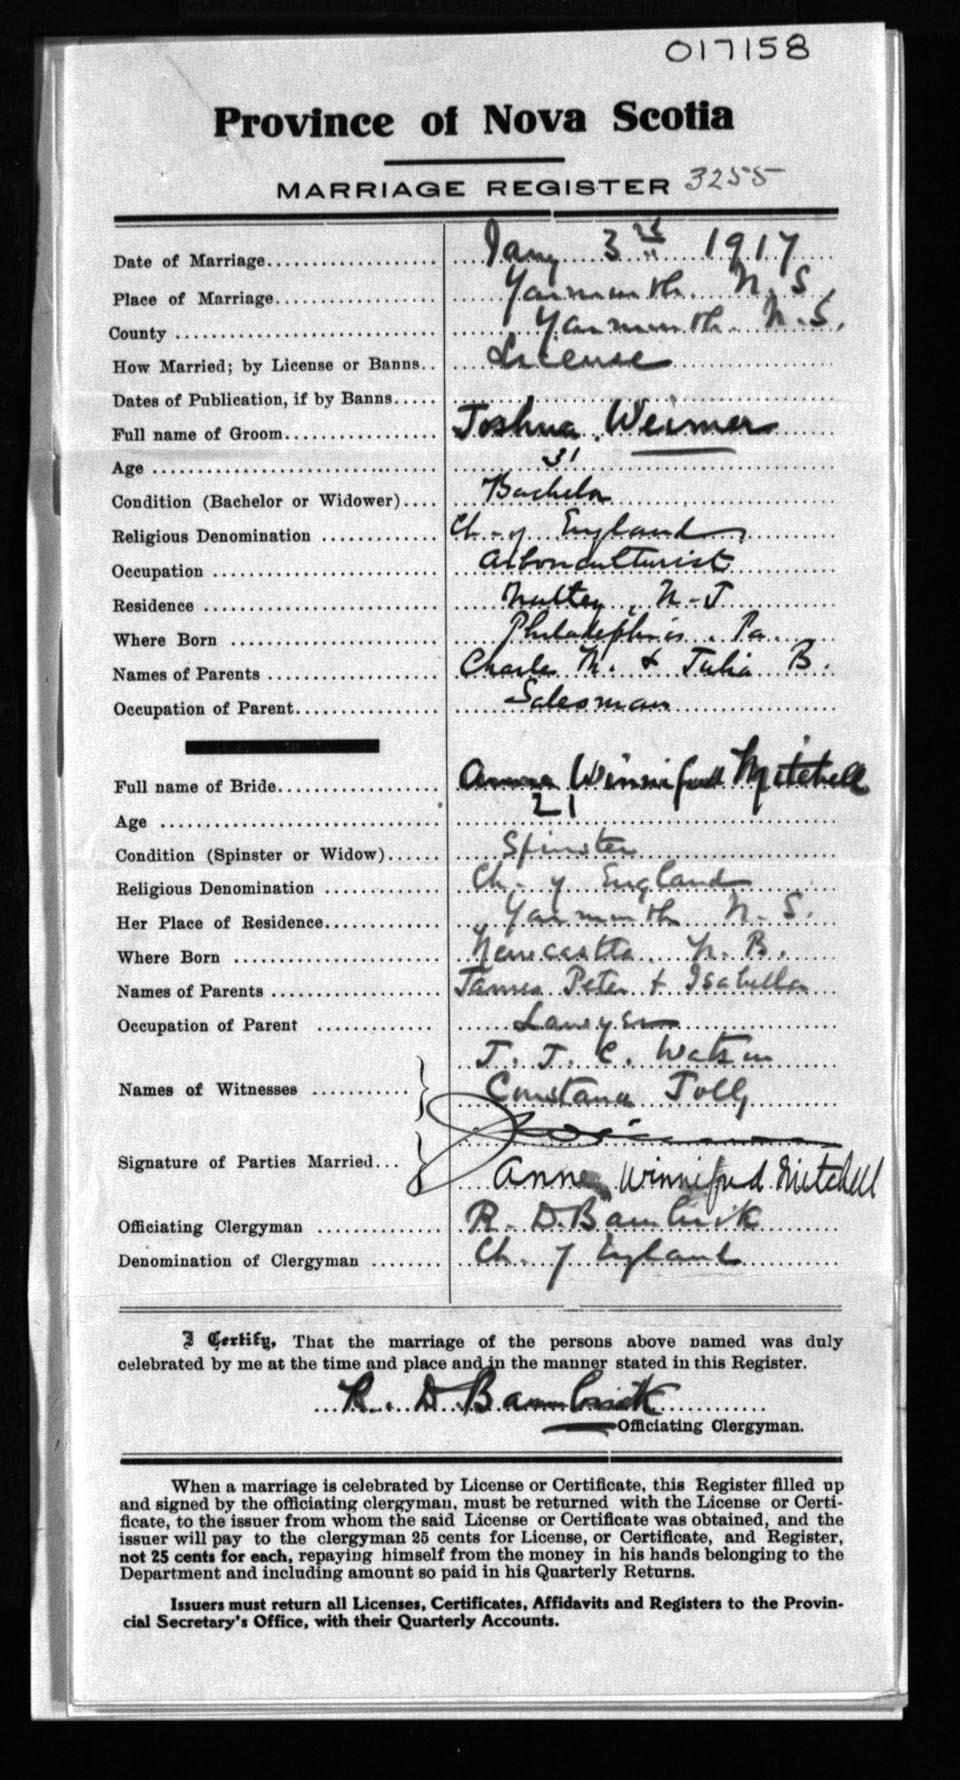 017158
Province of Nova Scotia
MARRIAGE REGISTER 3255
Date of Marriage Jany 3rd 1917
Place of Marriage Yarmouth. N. S.
County Yarmouth. N. S.
How Married; by License or Banns License
Dates of Publication, if by Banns
Full name of Groom Joshua Weimer
Age 31
Condition (Bachelor or Widower) Bachelor
Religious Denomination Ch. of England
Occupation Arboriculturist
Residence Nutley, N-J
Where Born Philadelphia. Pa.
Names of Parents Charles M. & Julia B.
Occupation of Parent Salesman
Full name of Bride Anne Winnifred Mitchell
Age 21
Condition (Spinster or Widow) Spinster
Religious Denomination Ch. of England
Her Place of Residence Yarmouth N. S.
Where Born Newcastle. N. B.
Names of Parents James Peter & Isabella
Occupation of Parent Lawyer
T. J. C. Watson
Names of Witnesses Jolly
Signature of Parties Married
Anne Winnifred Mitchell
Officiating Clergyman R. D. Bambrick
Denomination of Clergyman Ch. of England
I Certify, That the marriage of the persons above named was duly
celebrated by me at the time and place and in the manner stated in this Register.
R. D. Bambrick
Officiating Clergyman.
When a marriage is celebrated by License or Certificate, this Register filled up
and signed by the officiating clergyman, must be returned with the License or Certi-
ficate, to the issuer from whom the said License or Certificate was obtained, and the
issuer will pay to the clergyman 25 cents for License, or Certificate, and Register,
not 25 cents for each, repaying himself from the money in his hands belonging to the
Department and including amount so paid in his Quarterly Returns.
Issuers must return all Licenses, Certificates, Affidavits and Registers to the Provin-
cial Secretary's Office, with their Quarterly Accounts.